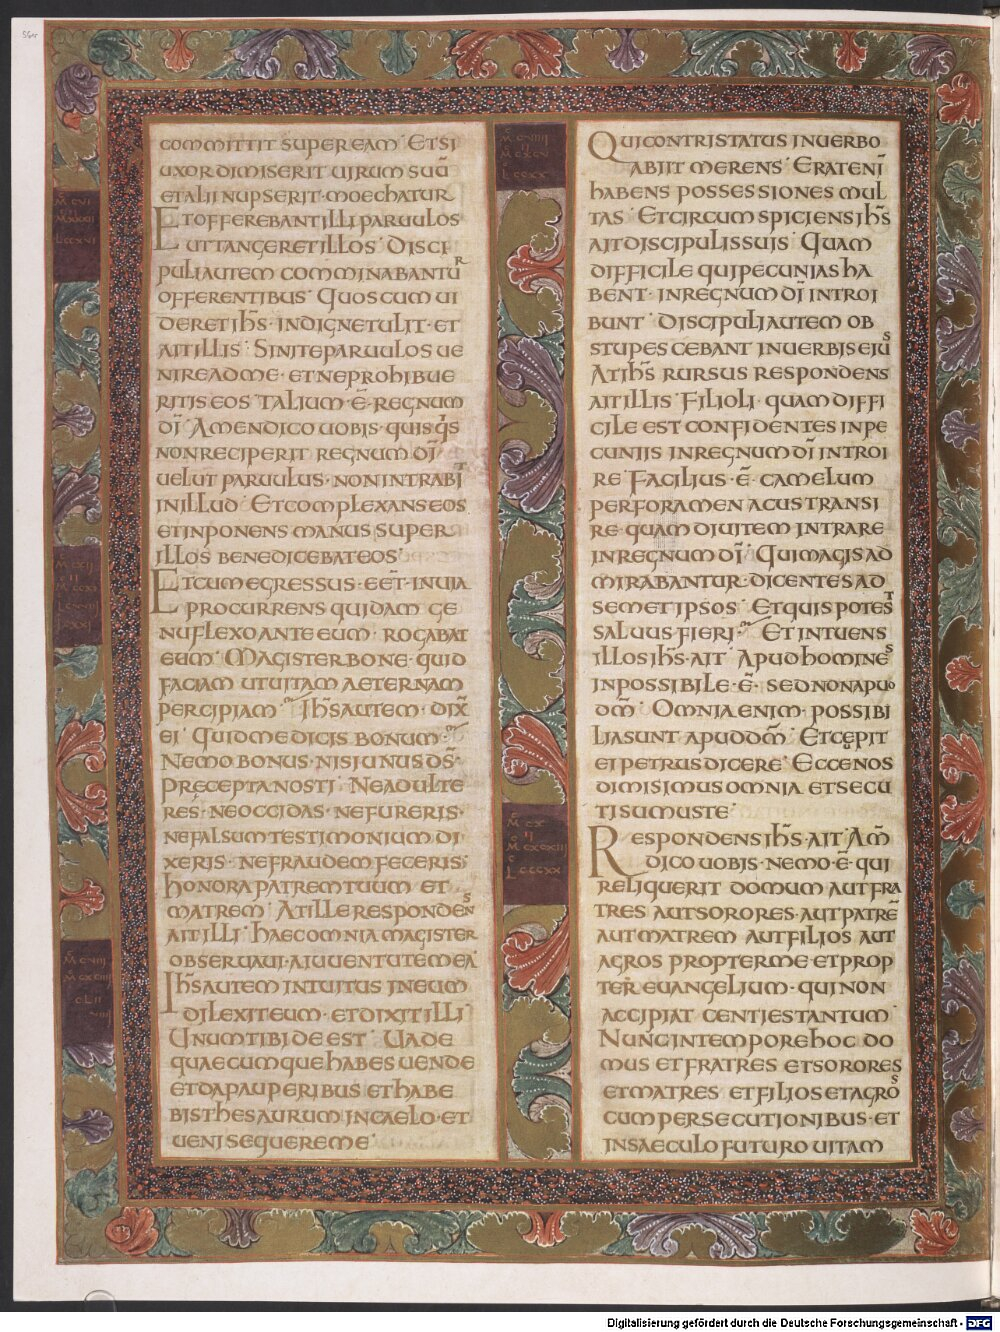 56r
COMMITTIT SUPER EAM· ET SI
UXOR DIMISERIT UIRUM SUŪ
ET ALII NUPSERIT· MOECHATUR
ET OFFEREBANT ILLI PARUULOS
UT TANGERET ILLOS· DISCI
PULI AUTEM COMMINABANTUR
OFFERENTIBUS· QUOS CUM UI
DERET IH̅S· INDIGNE TULIT· ET
AIT ILLIS· SINITE PARUULOS UE
NIRE AD ME· ET NE PROHIBUE
RITIS EOS· TALIUM· Ē· REGNUM
DĪ· AMEN DICO UOBIS· QUISQIS
NON RECIPERIT REGNUM DĪ
UELUT PARUULUS· NON INTRABIT
IN ILLUD· ET COMPLEXANS EOS
ET INPONENS MANUS SUPER
ILLOS BENEDICEBAT EOS·
ET CUM EGRESSUS· EĒT· IN UIA
PROCURRENS QUIDAM GE
NU FLEXO ANTE EUM· ROGABAT
EUM· MAGISTER BONE· QUID
FACIAM UT UITAM AETERNAM
PERCIPIAM· IH̅S AUTEM· DIX̅
EI· QUID ME DICIS BONUM·
NEMO BONUS· NISI UNUS DS̅·
PRECEPTA NOSTI· NE ADULTE
RES· NE OCCIDAS· NE FURERIS·
NE FALSUM TESTIMONIUM DI
XERIS· NE FRAUDEM FECERIS·
HONORA PATREM TUUM ET
MATREM· AT ILLE RESPONDENS
AIT ILLI· HAEC OMNIA MAGISTER
OBSERUAUI· A IUUENTUTE MEA
IH̅S AUTEM INTUITUS IN EUM
DILEXIT EUM· ET DIXIT ILLI
UNUM TIBI DEEST· UADE
QUAECUMQUE HABES UENDE
ET DA PAUPERIBUS ET HABE
BIS THESAURUM IN CAELO· ET
UENI SEQUERE ME·
QUI CONTRISTATUS IN UERBO
ABIIT MERENS· ERAT ENĪ
HABENS POSSESSIONES MUL
TAS· ET CIRCUMSPICIENS IH̅S
AIT DISCIPULIS SUIS· QUAM
DIFFICILE QUI PECUNIAS HA
BENT· IN REGNUM DĪ INTROI
BUNT· DISCIPULI AUTEM OB
STUPESCEBANT IN UERBIS EIUS
AT IH̅S RURSUS RESPONDENS
AIT ILLIS· FILIOLI· QUAM DIFFI
CILE EST CONFIDENTES IN PE
CUNIIS IN REGNUM DĪ INTROI
RE· FACILIUS· Ē· CAMELUM
PER FORAMEN ACUS TRANSI
RE· QUAM DIUITEM INTRARE
IN REGNUM DĪ· QUI MAGIS AD
MIRABANTUR· DICENTES AD
SEMET IPSOS· ET QUIS POTEST
SALUUS FIERI· ET INTUENS
ILLOS IH̅S· AIT· APUD HOMINES
INPOSSIBILE· Ē· SED NON APUD
DM̅· OMNIA ENIM· POSSIBI
LIA SUNT APUD DM̅· ET CEPIT
EI PETRUS DICERE· ECCE NOS
DIMISIMUS OMNIA ET SECU
TI SUMUS TE·
RESPONDENS IH̅S· AIT· AM̅
DICO UOBIS· NEMO· Ē· QUI
RELIQUERIT DOMUM AUT FRA
TRES AUT SORORES· AUT PATRĒ
AUT MATREM AUT FILIOS AUT
AGROS PROPTER ME· ET PROP
TER EUANGELIUM· QUI NON
ACCIPIAT CENTIES TANTUM
NUNC IN TEMPORE HOC DO
MUS ET FRATRES ET SORORES
ET MATRES ET FILIOS ET AGROS
CUM PERSECUTIONIBUS· ET
IN SAECULO FUTURO UITAM
Digitalisierung gefördert durch die Deutsche Forschungsgemeinschaft - DFG